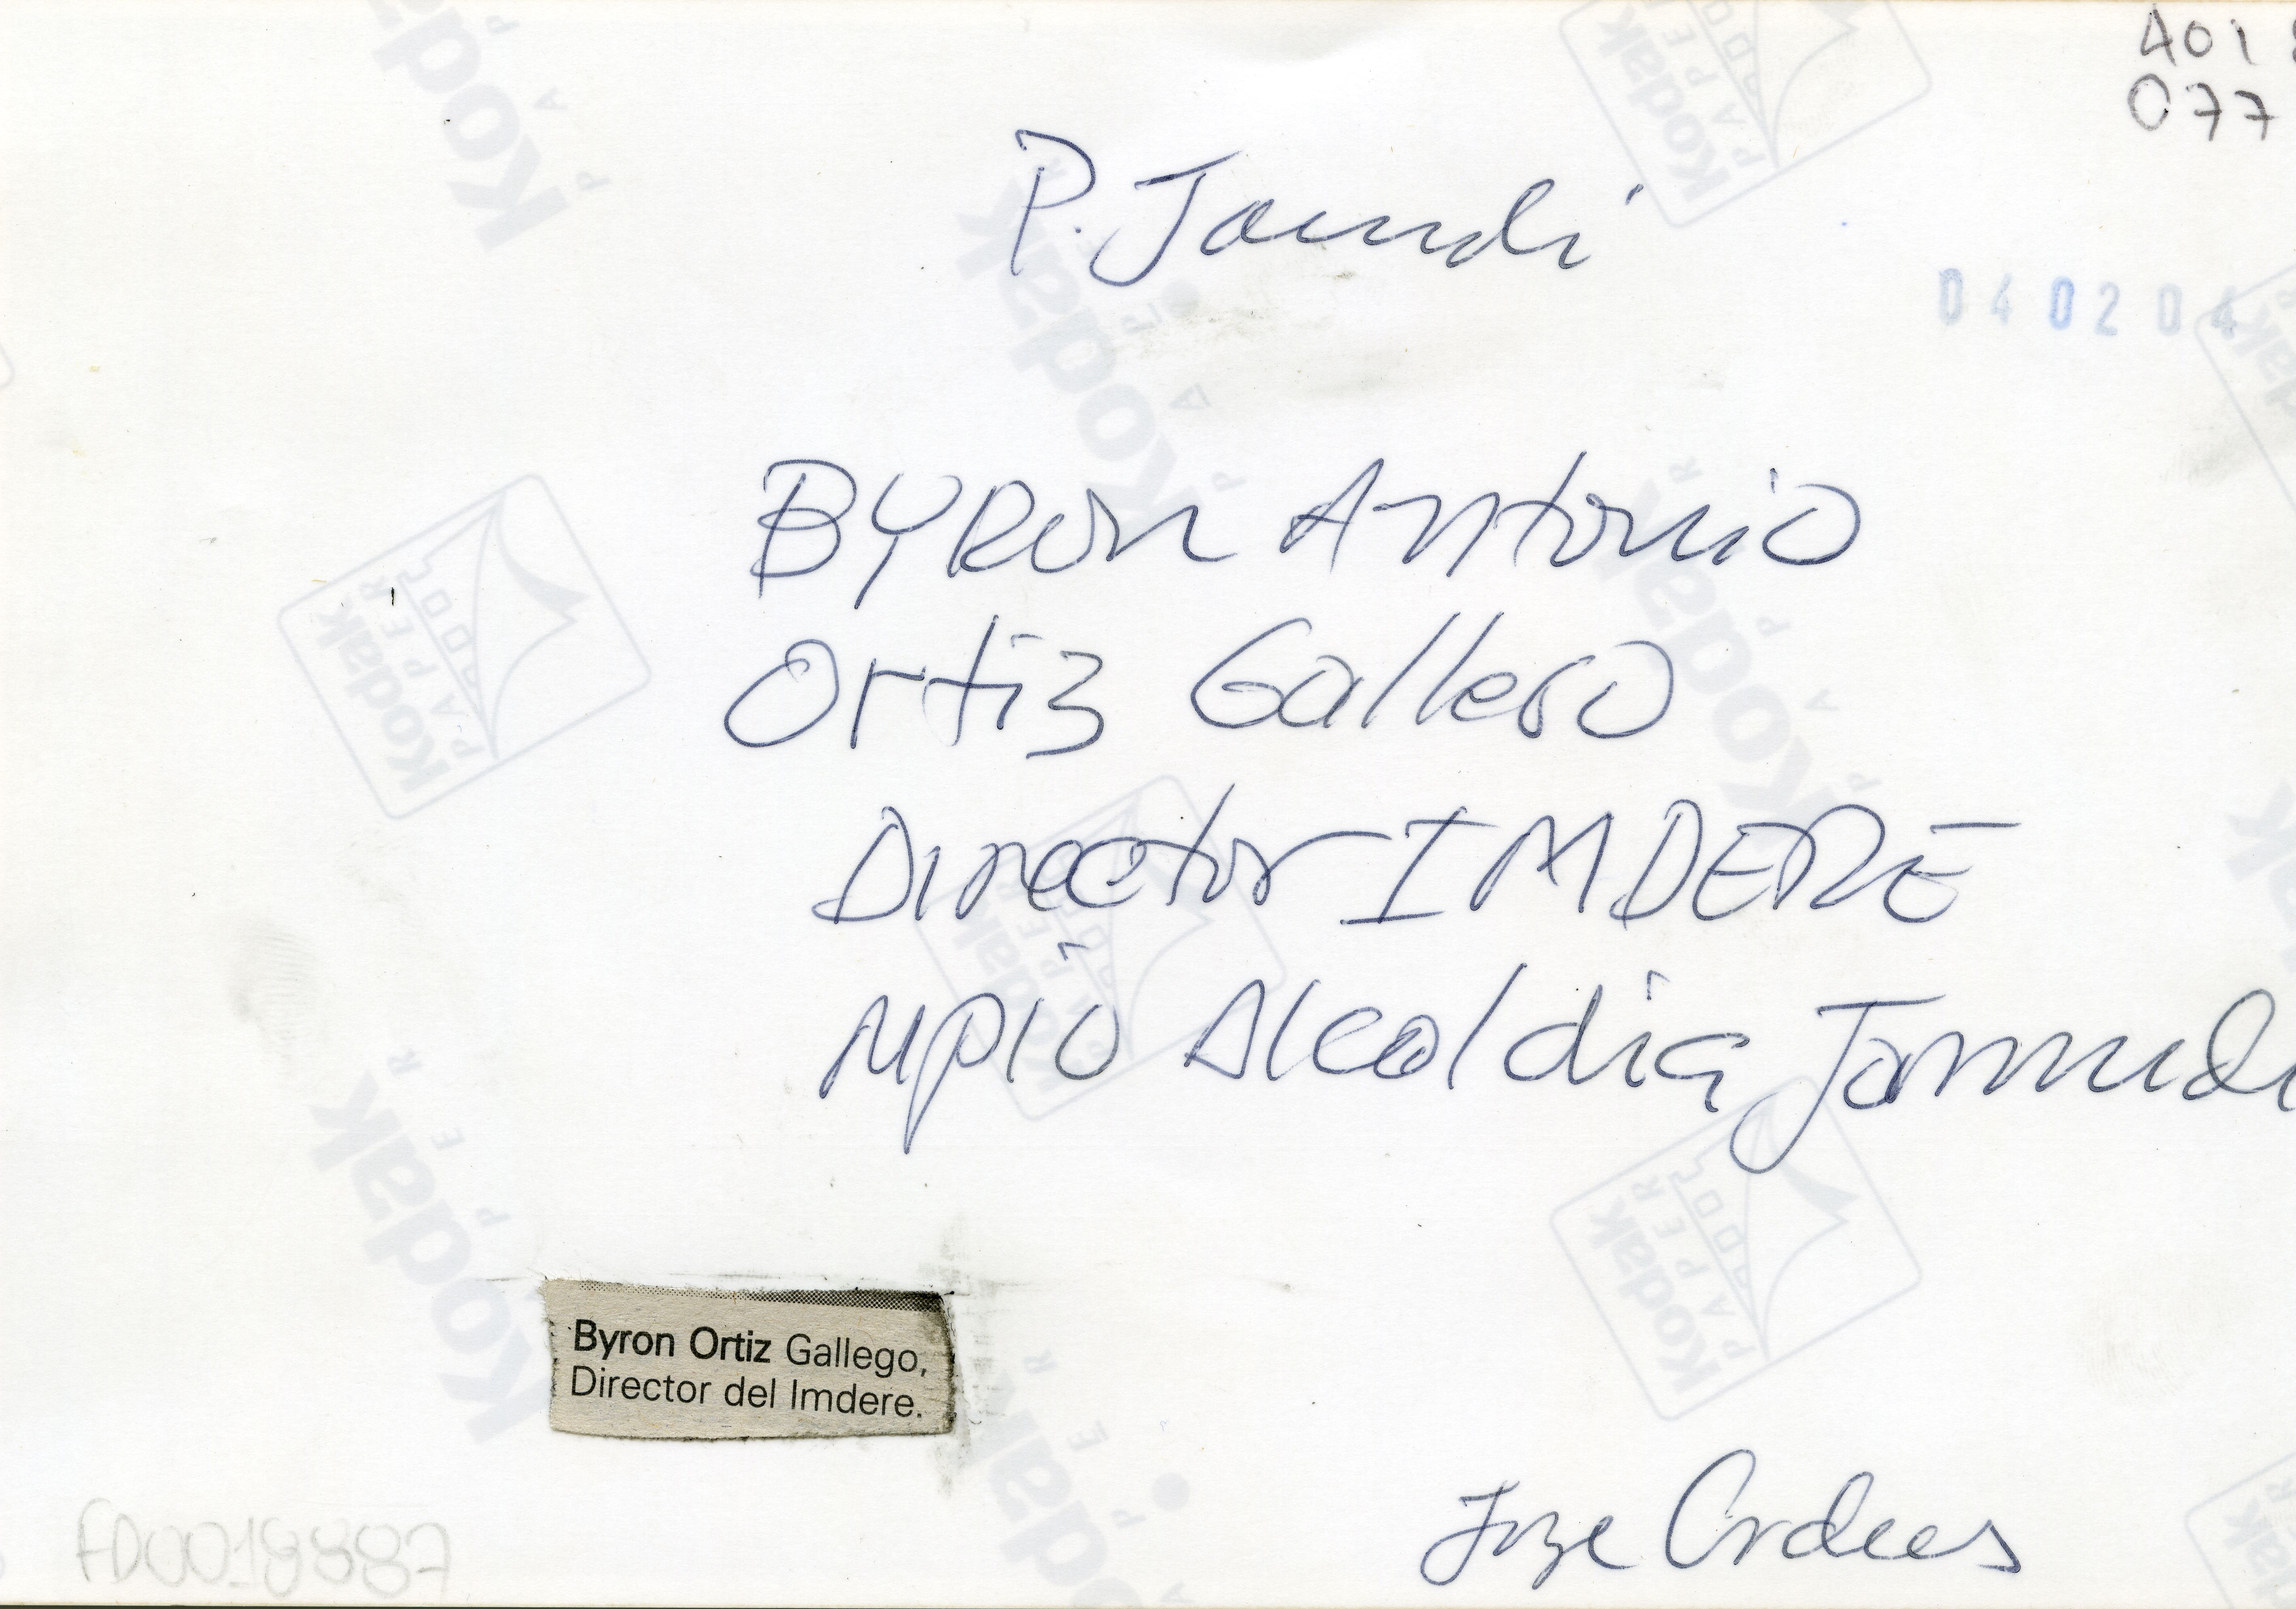 A018
077
P. Jamundí
040204
BYRon Antonio
Ortiz Gallego
Director IMDERE
MPIO Alcaldía Jamundi
Byron Ortiz Gallego,
Director del Imdere.
FD0018887
Kodak
PAPER